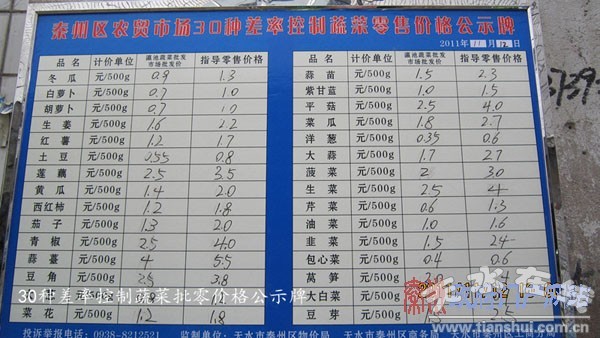 秦州区农贸市场30种差率控制蔬菜零售价格公示牌
2011年11月12日
品名 计价单位 瀛池蔬菜批发市场批发价 指导零售价格
冬瓜 元/500g 0.9 1.3
白萝卜 元/500g 0.7 1.0
胡萝卜 元/500g 0.7 1.0
生姜 元/500g 1.6 2.2
红薯 元/500g 1.2 1.7
土豆 元/500g 0.55 0.8
莲藕 元/500g 2.5 3.5
黄瓜 元/500g 1.4 2.0
西红柿 元/500g 1.2 1.8
茄子 元/500g 1.3 2.0
青椒 元/500g 2.5 4.0
蒜薹 元/500g 4 5.5
豆角 元/500g 2.5 3.8
菜花 元/500g 1.2 1.8
品名 计价单位 瀛池蔬菜批发市场批发价 指导零售价格
蒜苗 元/500g 1.5 2.3
紫甘蓝 元/500g 1.0 1.5
平菇 元/500g 2.5 4.0
菜瓜 元/500g 1.8 2.7
洋葱 元/500g 0.35 0.6
大蒜 元/500g 1.7 2.7
菠菜 元/500g 2 3.0
生菜 元/500g 2.5 4
芹菜 元/500g 0.6 1.3
油菜 元/500g 1.0 1.6
韭菜 元/500g 1.5 2.4
包心菜 元/500g 0.4 0.6
莴笋 元/500g
大白菜 元/500g
豆芽 元/500g
30种差率控制蔬菜批零价格公示牌
投诉举报电话:0938-8212521 监制单位:天水市秦州区物价局 天水市秦州区商务局 天水市秦州区工商分局
3739
天水在线
www.tianshui.com.cn